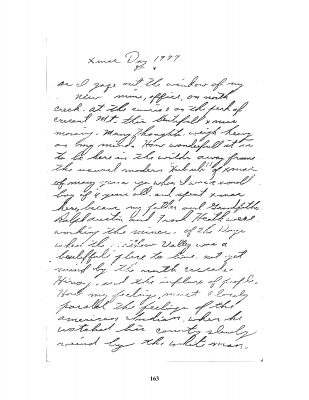 Xmas Day 1977
as I gaze out the window of my
new mine, office, on north
creek at the mines on the peak of
crescent Mt. this beautifull xmas
morning. Many thoughts weigh heavy
on my mind. How wonderfull it is
to be here in the wilds away from
the usual modern "hubub" of xmas
of many years ago when I was a small
boy of 4 years old, and spent xmas
here because my father and Grandfather
Ralph Austin and Frank Heath were
working the mines. of the Days
when the Valley was a
beautifful place to live. not yet
ruined by the north cascade
Hiway. and the influx of people.
How my feelings must closely
parallel the feelings of the
american Indian. when he
watched his country slowly
ruined by the white man.
163